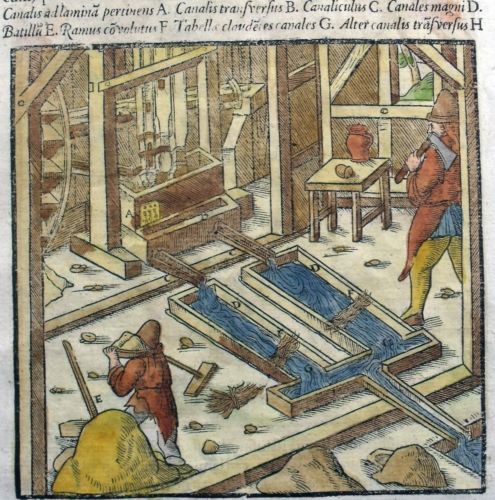 Canalis ad laminā pertinens A. Canalis tranſverſus B. Canaliculus C. Canales magni D.
Batillū E. Ramus cōvolutus F. Tabellæ claudētes canales G. Alter canalis trāſverſus H
A
D
D
E
F
G
G